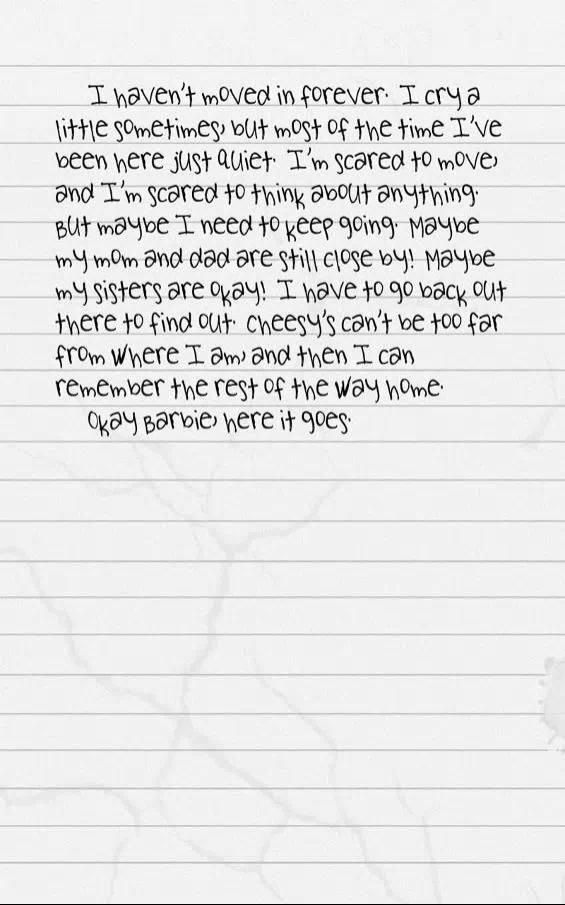 I haven't moved in forever. I cry a
little sometimes, but most of the time I've
been here just quiet. I'm scared to move,
and I'm scared to think about anything.
But maybe I need to keep going. Maybe
my mom and dad are still close by! Maybe
my sisters are okay! I have to go back out
there to find out. Cheesy's can't be too far
from where I am, and then I can
remember the rest of the way home.
Okay Barbie, here it goes.